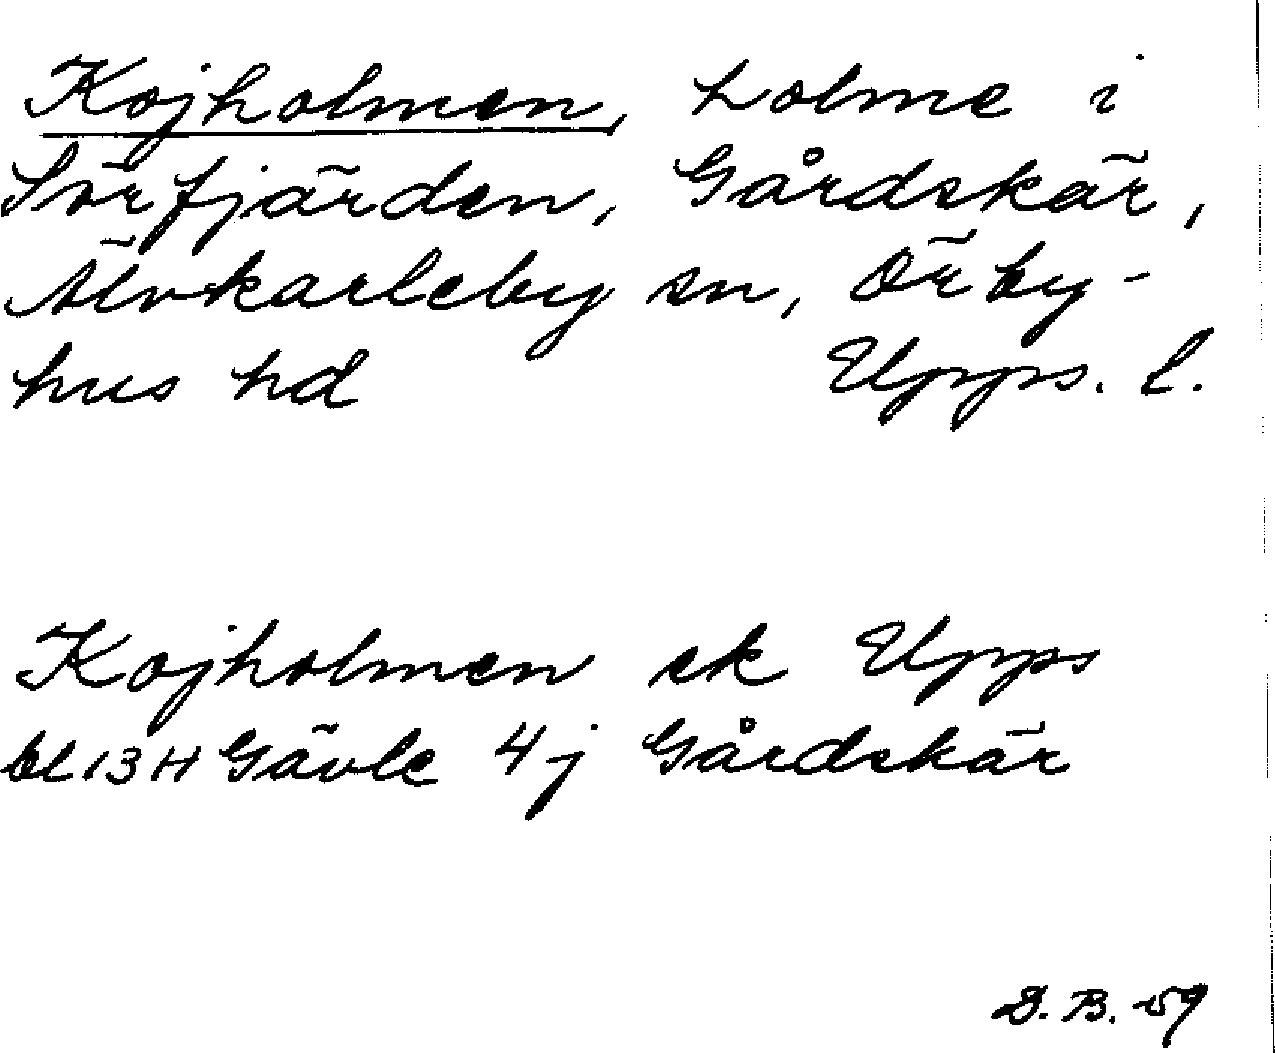 Kojholmen, holme i
Sörfjärden, Gårdskär,
Älvkarleby sn, Örby-
hus hd Upps. l.
Kojholmen ek Upps
bl 13 H Gävle 4 j Gårdskär
D. B. 59